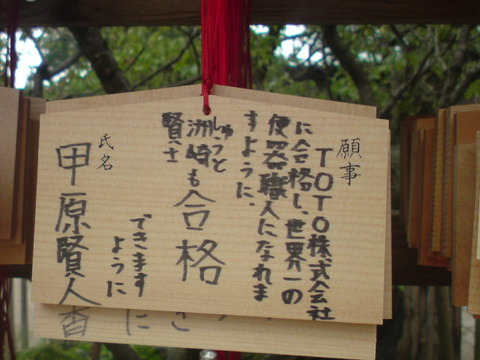 願事
TOTO株式会社
に合格し、世界一の
便器職人になれま
すように、
しゅうと
洲崎も合格
賢さ
できます
ように
氏名
甲原賢人
香
に
さ